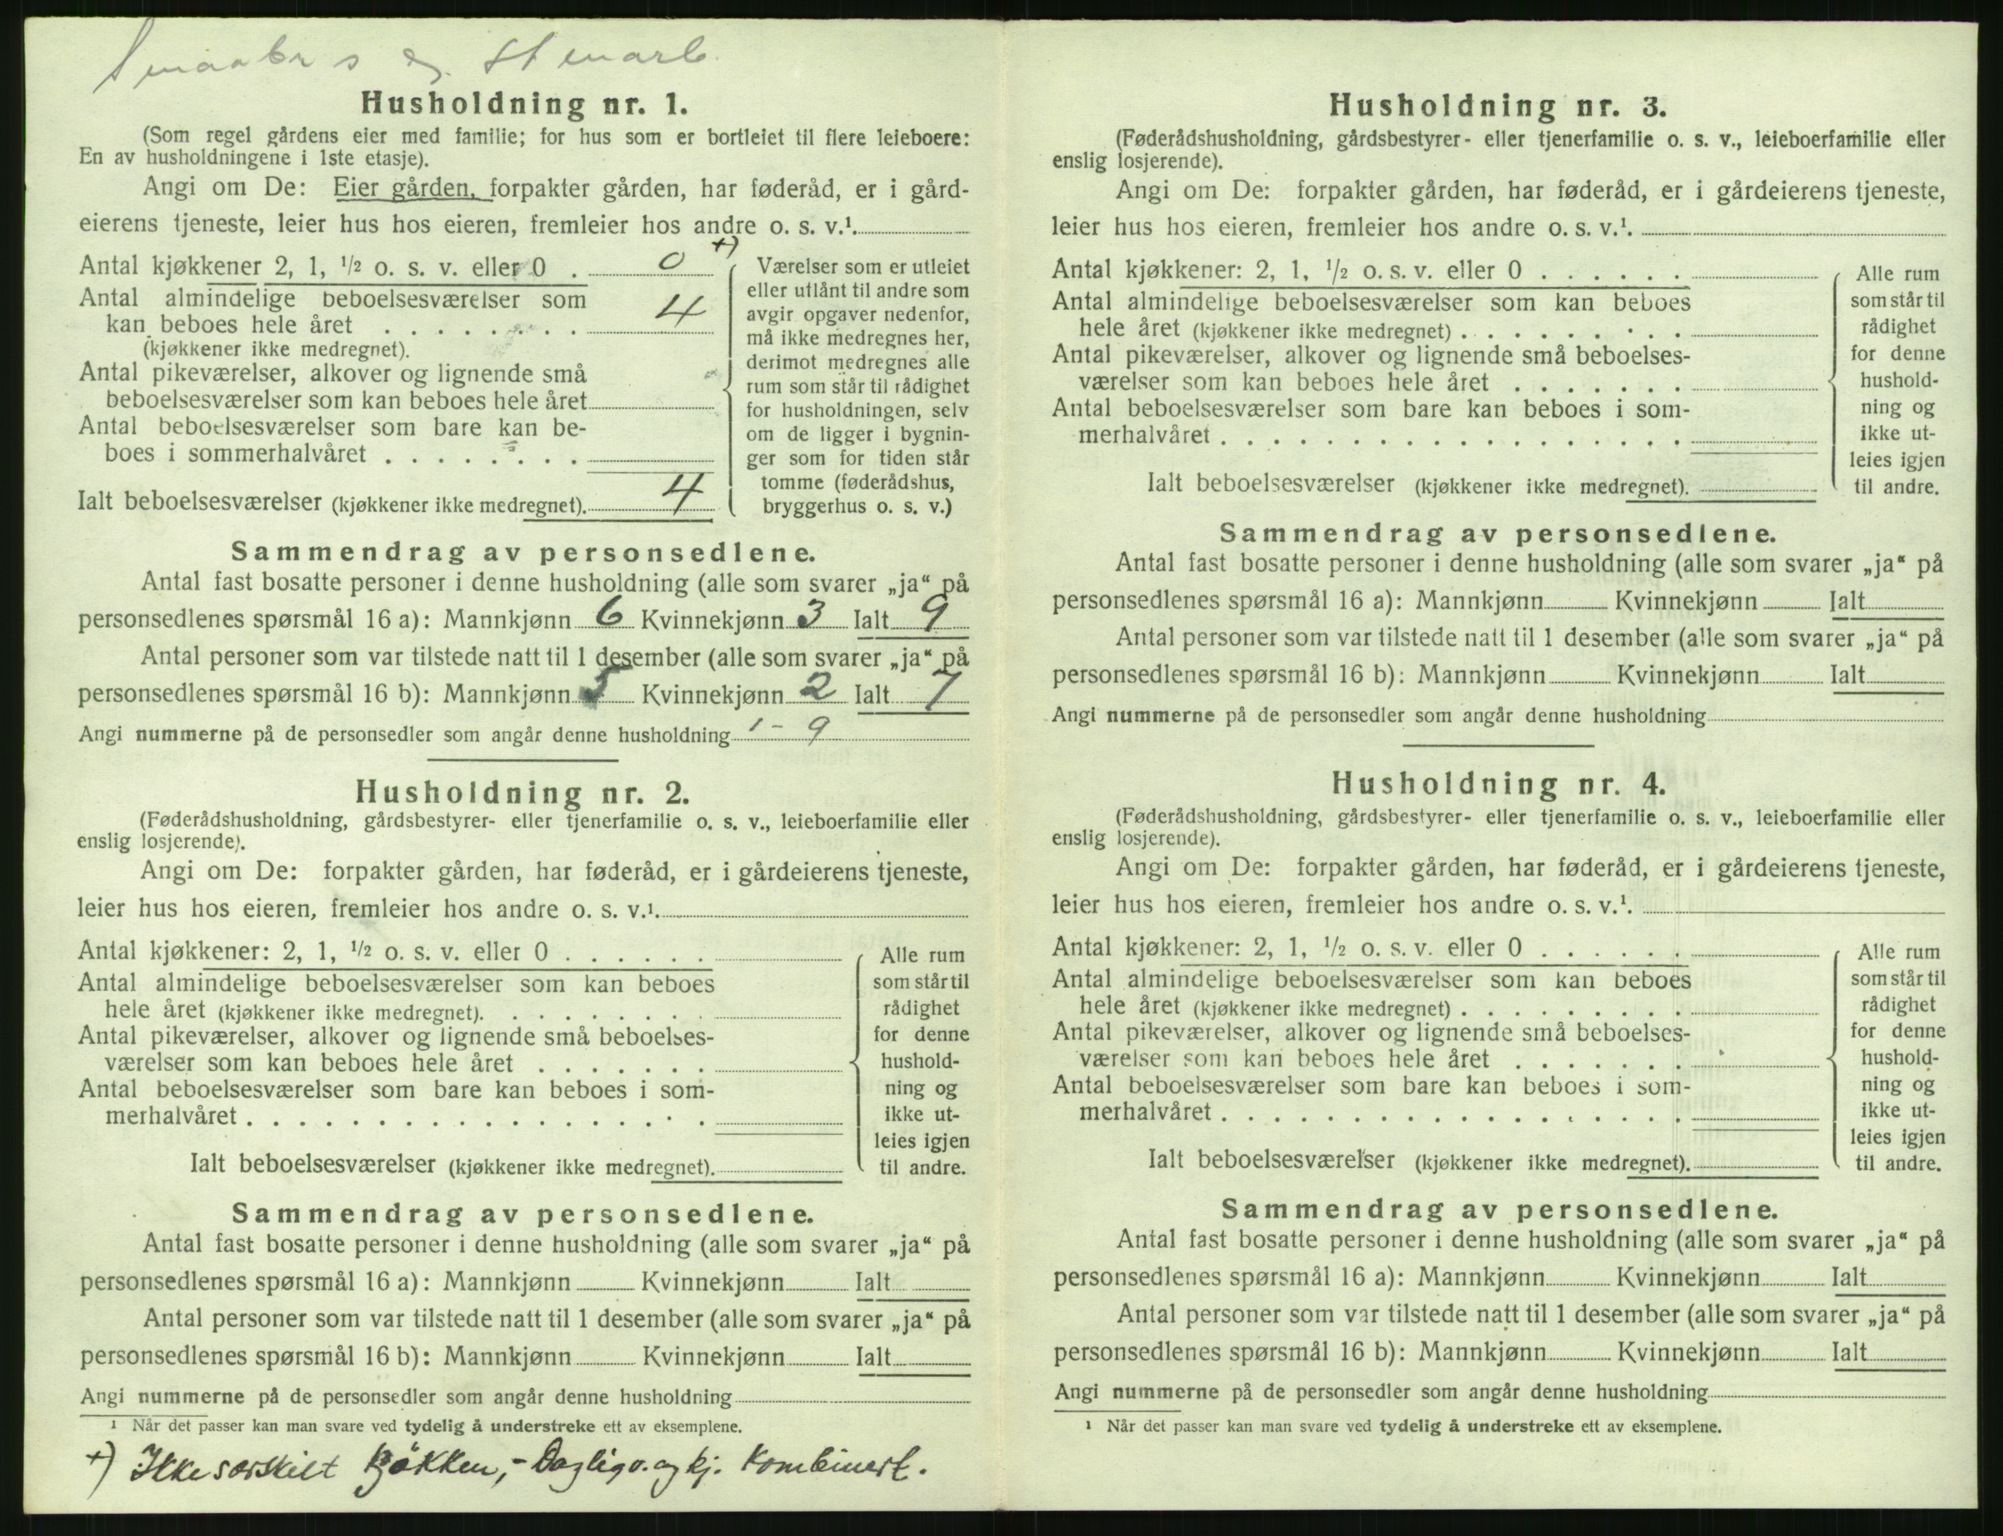 Smaabr s og Stenarb.
Husholdning nr. 1.
(Som regel gårdens eier med familie; for hus som er bortleiet til flere leieboere:
En av husholdningene i 1ste etasje).
Angi om De: Eier gården, forpakter gården, har føderåd, er i gård-
eierens tjeneste, leier hus hos eieren, fremleier hos andre o. s. v.¹.
+)
Antal kjøkkener 2, 1, ½ o. s. v. eller 0 . 0
Antal almindelige beboelsesværelser som
kan beboes hele året . . . . . . . . 4
(kjøkkener ikke medregnet).
Antal pikeværelser, alkover og lignende små
beboelsesværelser som kan beboes hele året
Antal beboelsesværelser som bare kan be-
boes i sommerhalvåret . . . . . . . .
Ialt beboelsesværelser (kjøkkener ikke medregnet). 4
Værelser som er utleiet
eller utlånt til andre som
avgir opgaver nedenfor,
må ikke medregnes her,
derimot medregnes alle
rum som står til rådighet
for husholdningen, selv
om de ligger i bygnin-
ger som for tiden står
tomme (føderådshus,
bryggerhus o. s. v.)
Sammendrag av personsedlene.
Antal fast bosatte personer i denne husholdning (alle som svarer „ja“ på
personsedlenes spørsmål 16 a): Mannkjønn 6 Kvinnekjønn 3 Ialt 9
Antal personer som var tilstede natt til 1 desember (alle som svarer „ja“ på
personsedlenes spørsmål 16 b): Mannkjønn 5 Kvinnekjønn 2 Ialt 7
Angi nummerne på de personsedler som angår denne husholdning 1 - 9
Husholdning nr. 2.
(Føderådshusholdning, gårdsbestyrer- eller tjenerfamilie o. s. v., leieboerfamilie eller
enslig losjerende).
Angi om De: forpakter gården, har føderåd, er i gårdeierens tjeneste,
leier hus hos eieren, fremleier hos andre o. s. v.¹.
Antal kjøkkener: 2, 1, ½ o. s. v. eller 0 . . . . . .
Antal almindelige beboelsesværelser som kan beboes
hele året (kjøkkener ikke medregnet). . . . . . . . .
Antal pikeværelser, alkover og lignende små beboelses-
værelser som kan beboes hele året . . . . . . .
Antal beboelsesværelser som bare kan beboes i som-
merhalvåret . . . . . . . . . . . . . . . . . .
Ialt beboelsesværelser (kjøkkener ikke medregnet).
Alle rum
som står til
rådighet
for denne
hushold-
ning og
ikke ut-
leies igjen
til andre.
Sammendrag av personsedlene.
Antal fast bosatte personer i denne husholdning (alle som svarer „ja“ på
personsedlenes spørsmål 16 a): Mannkjønn Kvinnekjønn Ialt
Antal personer som var tilstede natt til 1 desember (alle som svarer „ja“ på
personsedlenes spørsmål 16 b): Mannkjønn Kvinnekjønn Ialt
Angi nummerne på de personsedler som angår denne husholdning
¹ Når det passer kan man svare ved tydelig å understreke ett av eksemplene.
+) Ikke særskilt kjøkken, - Daglig v. og kj. kombinert.
Husholdning nr. 3.
(Føderådshusholdning, gårdsbestyrer- eller tjenerfamilie o. s. v., leieboerfamilie eller
enslig losjerende).
Angi om De: forpakter gården, har føderåd, er i gårdeierens tjeneste,
leier hus hos eieren, fremleier hos andre o. s. v.¹.
Antal kjøkkener: 2, 1, ½ o. s. v. eller 0 . . . . . .
Antal almindelige beboelsesværelser som kan beboes
hele året (kjøkkener ikke medregnet) . . . . . . . . .
Antal pikeværelser, alkover og lignende små beboelses-
værelser som kan beboes hele året . . . . . . .
Antal beboelsesværelser som bare kan beboes i som-
merhalvåret . . . . . . . . . . . . . . . . . .
Ialt beboelsesværelser (kjøkkener ikke medregnet).
Alle rum
som står til
rådighet
for denne
hushold-
ning og
ikke ut-
leies igjen
til andre.
Sammendrag av personsedlene.
Antal fast bosatte personer i denne husholdning (alle som svarer „ja“ på
personsedlenes spørsmål 16 a): Mannkjønn Kvinnekjønn Ialt
Antal personer som var tilstede natt til 1 desember (alle som svarer „ja“ på
personsedlenes spørsmål 16 b): Mannkjønn Kvinnekjønn Ialt
Angi nummerne på de personsedler som angår denne husholdning
Husholdning nr. 4.
(Føderådshusholdning, gårdsbestyrer- eller tjenerfamilie o. s. v., leieboerfamilie eller
enslig losjerende).
Angi om De: forpakter gården, har føderåd, er i gårdeierens tjeneste,
leier hus hos eieren, fremleier hos andre o. s. v.¹.
Antal kjøkkener: 2, 1, ½ o. s. v. eller 0 . . . . . .
Antal almindelige beboelsesværelser som kan beboes
hele året (kjøkkener ikke medregnet) . . . . . . . . .
Antal pikeværelser, alkover og lignende små beboelses-
værelser som kan beboes hele året . . . . . . .
Antal beboelsesværelser som bare kan beboes i som-
merhalvåret . . . . . . . . . . . . . . . . . .
Ialt beboelsesværelser (kjøkkener ikke medregnet).
Alle rum
som står til
rådighet
for denne
hushold-
ning og
ikke ut-
leies igjen
til andre.
Sammendrag av personsedlene.
Antal fast bosatte personer i denne husholdning (alle som svarer „ja“ på
personsedlenes spørsmål 16 a): Mannkjønn Kvinnekjønn Ialt
Antal personer som var tilstede natt til 1 desember (alle som svarer „ja“ på
personsedlenes spørsmål 16 b): Mannkjønn Kvinnekjønn Ialt
Angi nummerne på de personsedler som angår denne husholdning
¹ Når det passer kan man svare ved tydelig å understreke ett av eksemplene.